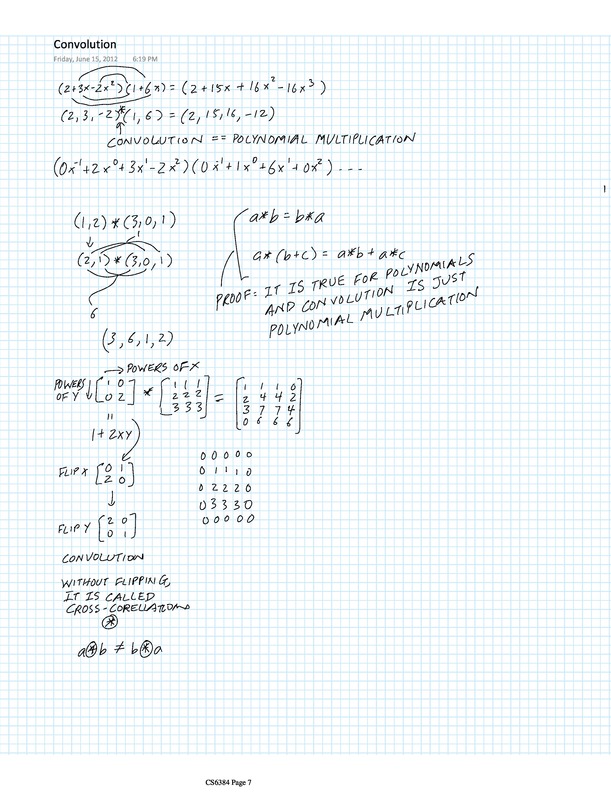 Convolution
Friday, June 15, 2012 6:19 PM
(2+3x-2x²)(1+6x) = (2+15x+16x²-16x³)
(2,3,-2)*(1,6) = (2,15,16,-12)
CONVOLUTION == POLYNOMIAL MULTIPLICATION
(0x⁻¹+2x⁰+3x¹-2x²)(0x¹+1x⁰+6x¹+0x²)...
(1,2)*(3,0,1)
(2,1)*(3,0,1)
6
(3,6,1,2)
a*b = b*a
a*(b+c) = a*b+a*c
PROOF: IT IS TRUE FOR POLYNOMIALS
AND CONVOLUTION IS JUST
POLYNOMIAL MULTIPLICATION
→ POWERS OF X
POWERS OF Y ↓ [1 0 * [1 1 1 = [1 1 1 0
0 2] 2 2 2 2 4 4 2
3 3 3] 3 7 7 4
0 6 6 6]
=
1+2xy
FLIP X [0 1
2 0]
↓
FLIP Y [2 0
0 1]
0 0 0 0 0
0 1 1 1 0
0 2 2 2 0
0 3 3 3 0
0 0 0 0 0
CONVOLUTION
WITHOUT FLIPPING,
IT IS CALLED
CROSS-CORELLATION
⊛
a⊛b ≠ b⊛a
1
CS6384 Page 7